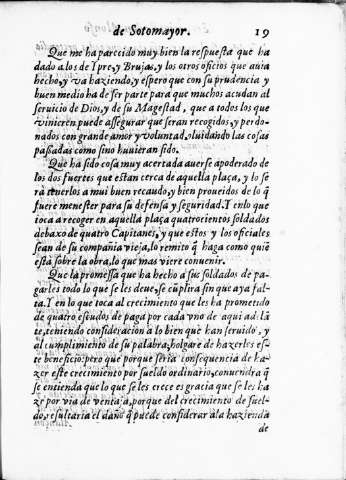 de Sotomayor. 19
Que me ha parecido muy bien la respuesta que ha
dado a los de Ypre, y Brujas, y los otros oficios que auia
hecho, y va haziendo, y espero que con su prudencia y
buen medio ha de ser parte para que muchos acudan al
seruicio de Dios, y de su Magestad, que a todos los que
vinieren puede assegurar que seran recogidos, y perdo-
nados con grande amor y voluntad, oluidando las cosas
passadas como sino huuieran sido.
Que ha sido cosa muy acertada auerse apoderado de
los dos fuertes que estan cerca de aquella plaça, y lo se
rà tenerlos a mui buen recaudo, y bien proueidos de lo q̃
fuere menester para su defensa y seguridad. Y en lo que
toca a recoger en aquella plaça quatrocientos soldados
debaxo de quatro Capitanes, y que estos y los oficiales
sean de su compañia vieja, lo remito q̃ haga como quiẽ
està sobre la obra, lo que mas viere conuenir.
Que la promessa que ha hecho a sus soldados de pa-
garles todo lo que se les deue, se cũplira sin que aya fal-
ta. Y en lo que toca al crecimiento que les ha prometido
de quatro escudos de paga por cada vno de aqui adelã
te, teniendo consideracion a lo bien que han seruido, y
al cumplimiento de su palabra, holgare de hazerles es-
te beneficio: pero que porque seria consequencia de ha-
zer este crecimiento por sueldo ordinario, conuendra q̃
se entienda que lo que se les crece es gracia que se les ha
ze por via de ventaja, porque del crecimiento de suel-
do, resultaria el daño q̃ puede considerar a la hazienda
de